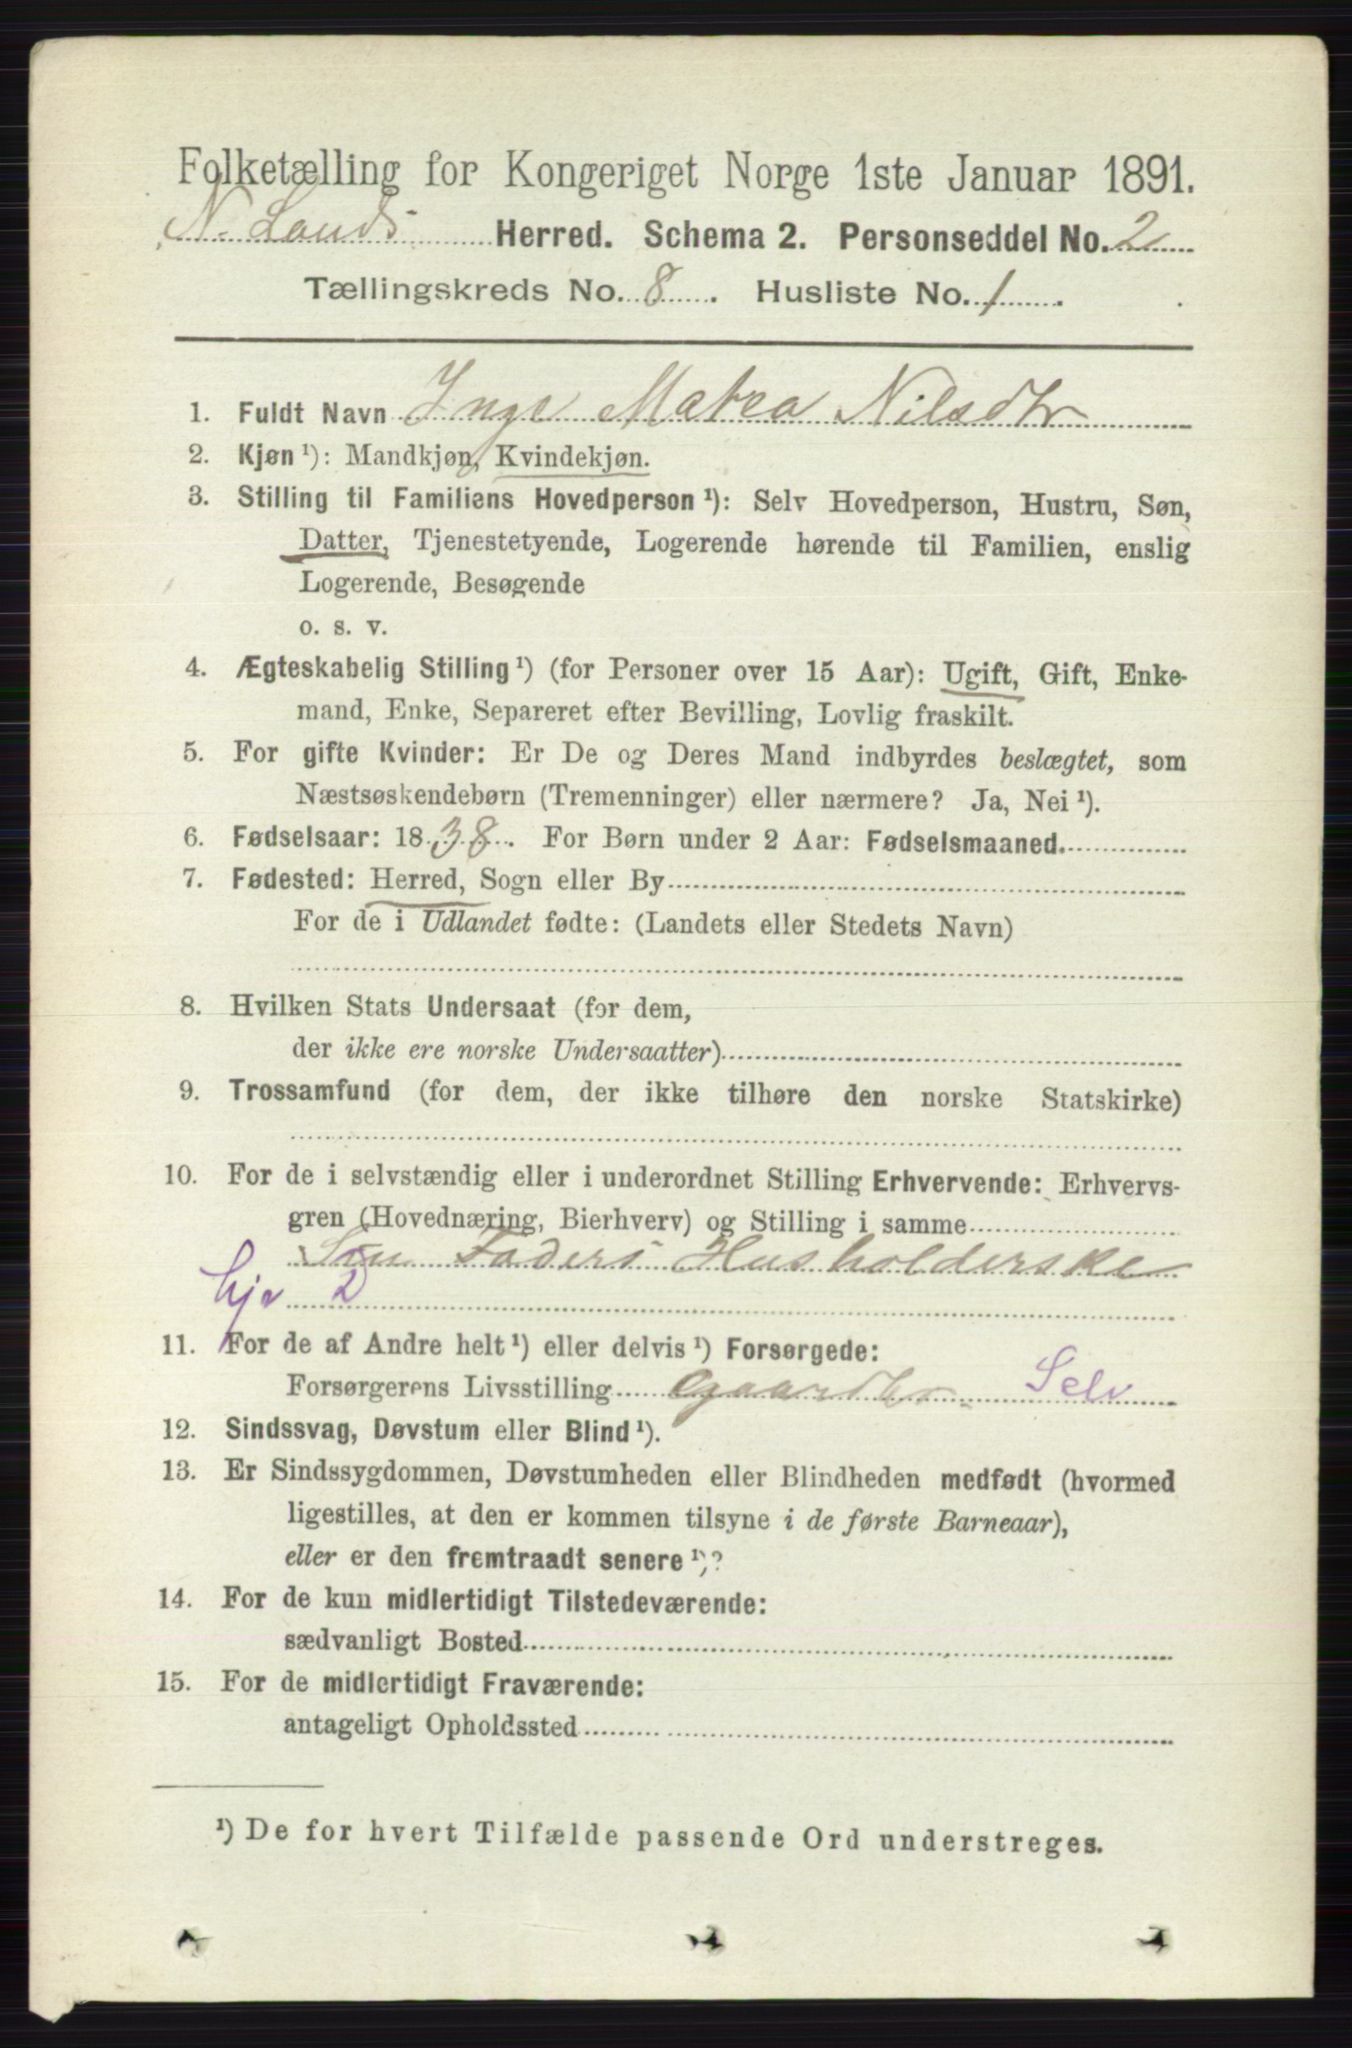 Folketælling for Kongeriget Norge 1ste Januar 1891.
N. Lands Herred. Schema 2. Personseddel No. 2
Tællingskreds No. 8. Husliste No. 1.
1. Fuldt Navn Inge Matea Nilsdtr
2. Kjøn ¹): Mandkjøn, Kvindekjøn.
3. Stilling til Familiens Hovedperson ¹): Selv Hovedperson, Hustru, Søn,
Datter, Tjenestetyende, Logerende hørende til Familien, enslig
Logerende, Besøgende
o. s. v.
4. Ægteskabelig Stilling ¹) (for Personer over 15 Aar): Ugift, Gift, Enke-
mand, Enke, Separeret efter Bevilling, Lovlig fraskilt.
5. For gifte Kvinder: Er De og Deres Mand indbyrdes beslægtet, som
Næstsøskendebørn (Tremenninger) eller nærmere? Ja, Nei ¹).
6. Fødselsaar: 1838. For Børn under 2 Aar: Fødselsmaaned.
7. Fødested: Herred, Sogn eller By
For de i Udlandet fødte: (Landets eller Stedets Navn)
8. Hvilken Stats Undersaat (for dem,
der ikke ere norske Undersaatter)
9. Trossamfund (for dem, der ikke tilhøre den norske Statskirke)
10. For de i selvstændig eller i underordnet Stilling Erhvervende: Erhvervs-
gren (Hovednæring, Bierhverv) og Stilling i samme
Sin Faders Husholderske
hje D
11. For de af Andre helt ¹) eller delvis ¹) Forsørgede:
Forsørgerens Livsstilling Gaardbr. Selv
12. Sindssvag, Døvstum eller Blind ¹).
13. Er Sindssygdommen, Døvstumheden eller Blindheden medfødt (hvormed
ligestilles, at den er kommen tilsyne i de første Barneaar),
eller er den fremtraadt senere ¹)?
14. For de kun midlertidigt Tilstedeværende:
sædvanligt Bosted
15. For de midlertidigt Fraværende:
antageligt Opholdssted
¹) De for hvert Tilfælde passende Ord understreges.